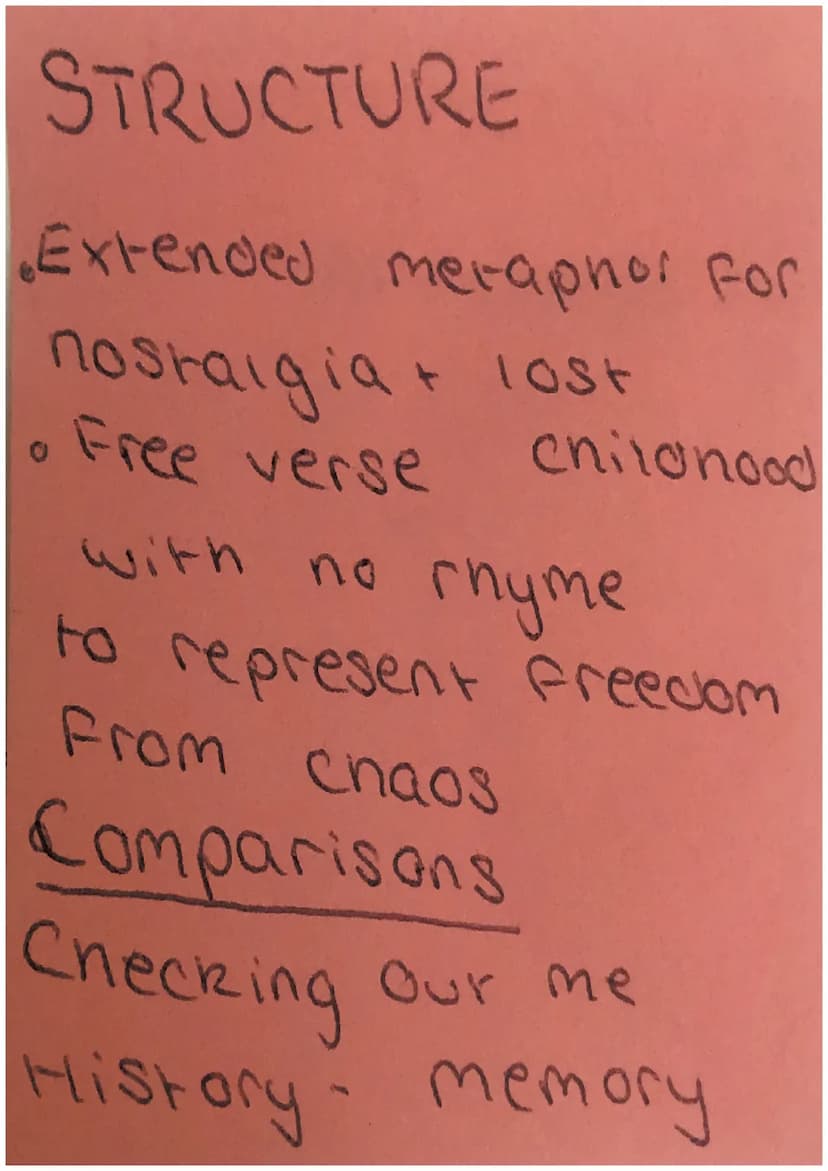 STRUCTURE
• Extended metaphor for
nostalgia + lost
• Free verse childhood
with no rhyme
to represent freedom
from chaos
Comparisons
Checking Out me
History - memory